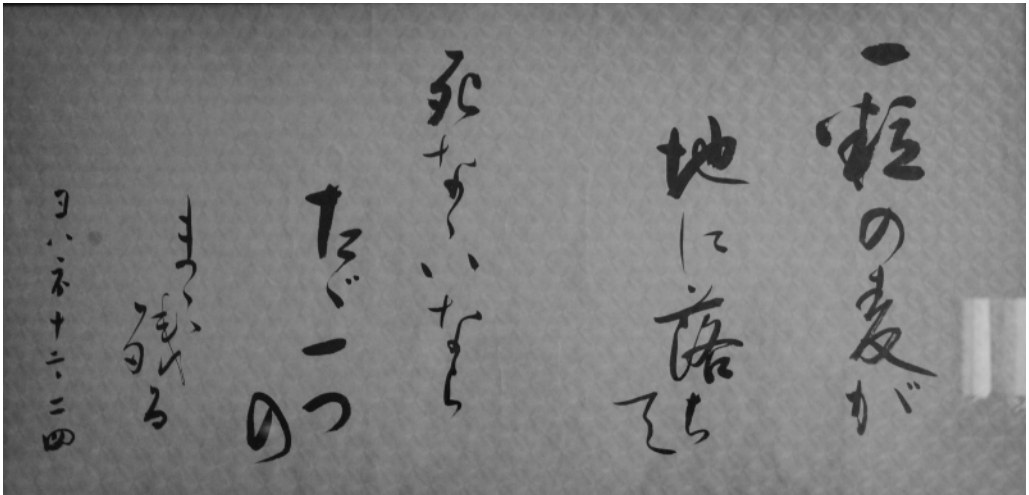 一粒の麦が
地に落ちて
死なゝいなら
たゞ一つの
まゝ残る
ヨハネ十二、二四